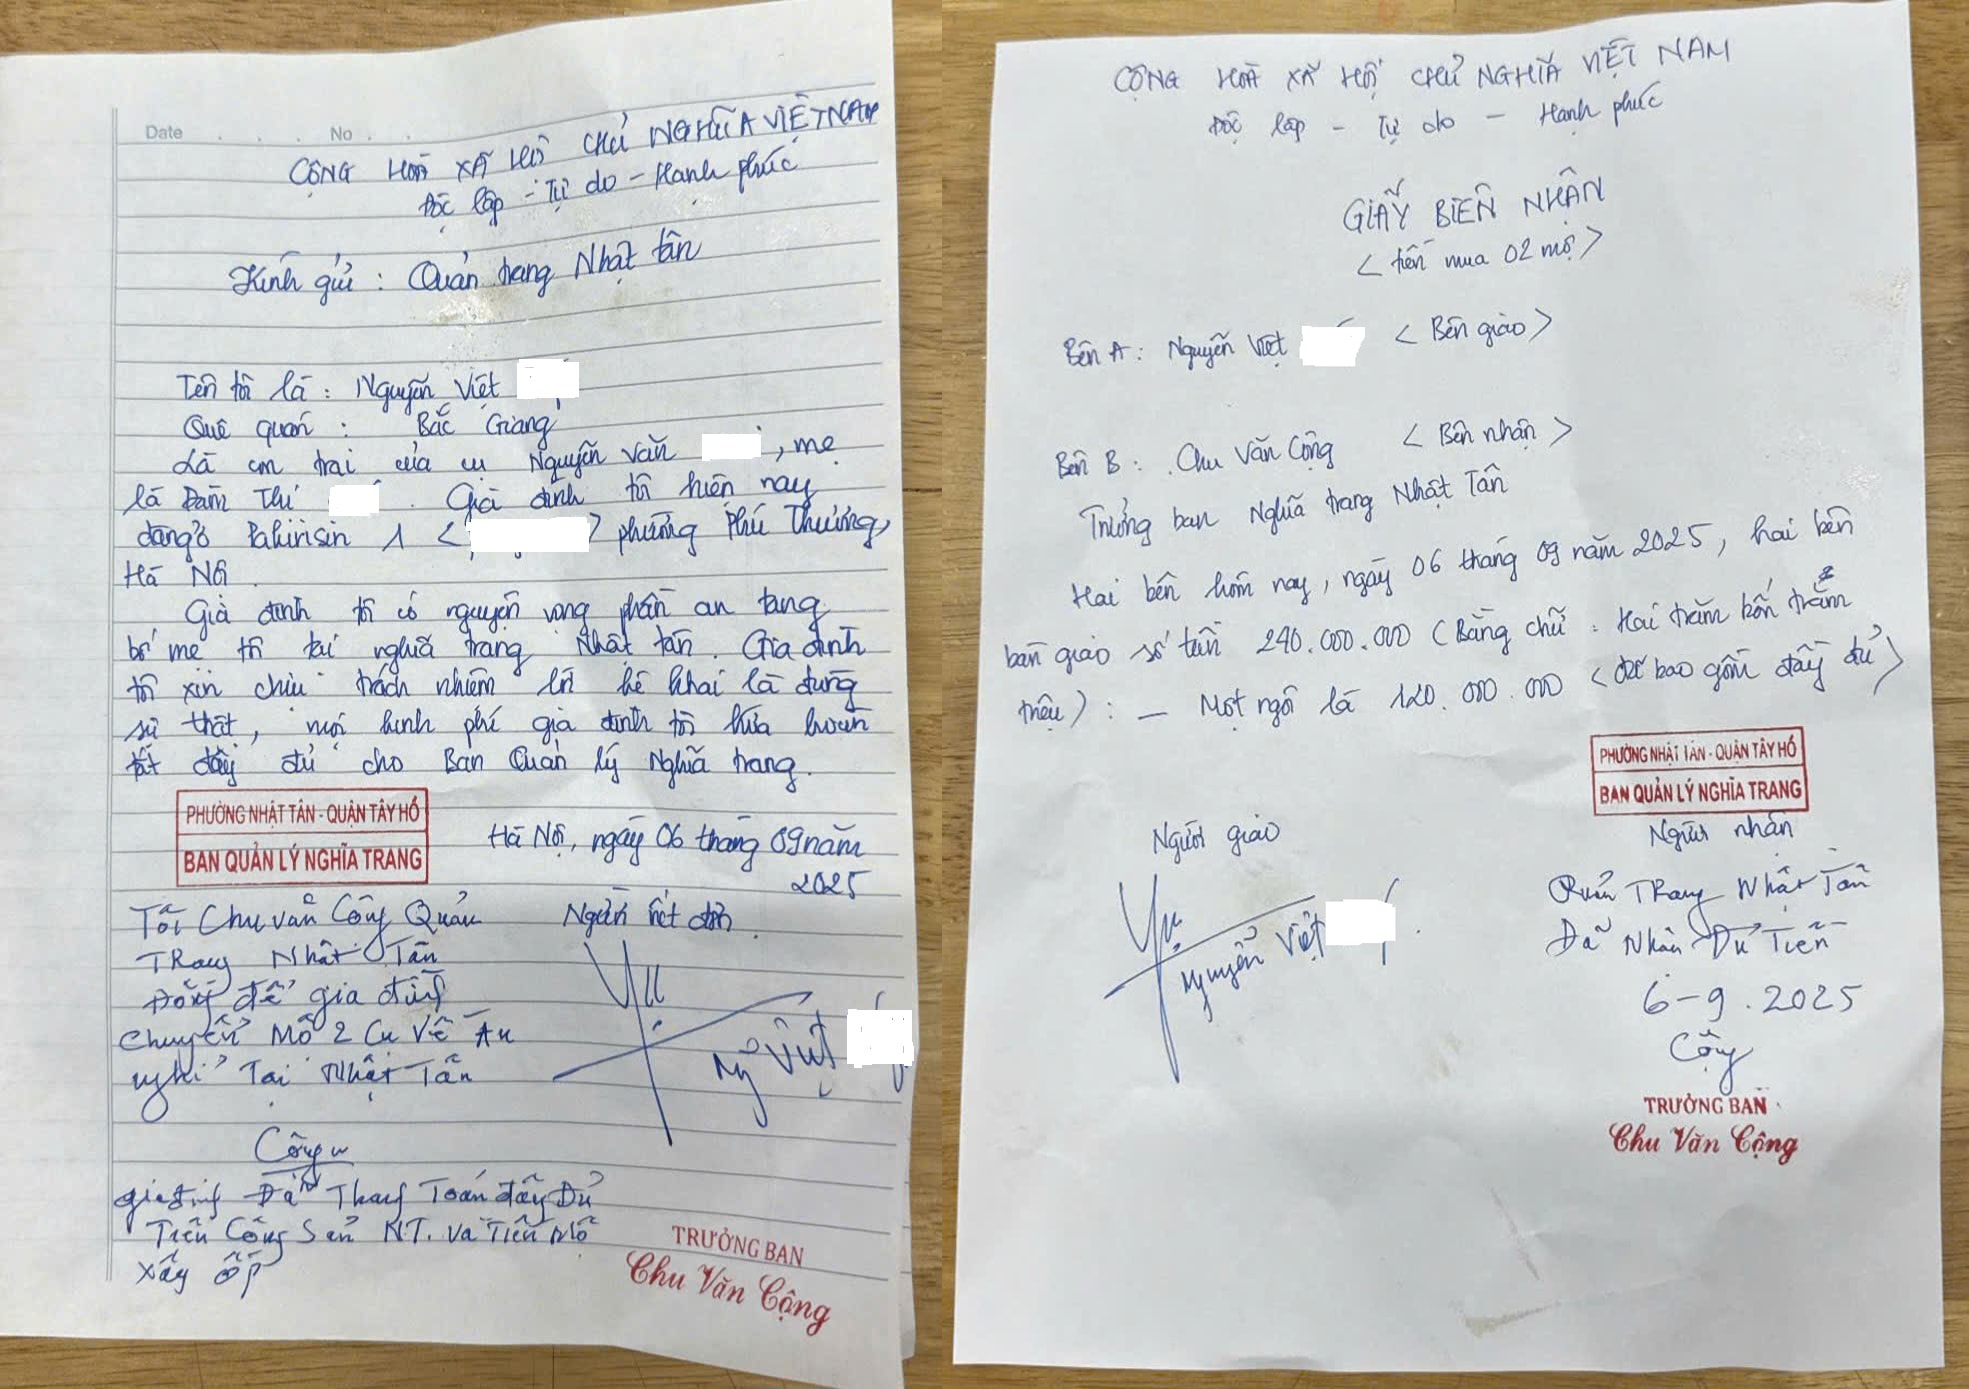 Date . . . . No . .
CỘNG HOÀ XÃ HỘ CHỦ NGHĨA VIỆT NAM
Độc lập - Tự do - Hạnh phúc
Kính gửi : Quản trang Nhật tân
Tên tôi là : Nguyễn Việt
Quê quán : Bắc Giang
Là con trai của cụ Nguyễn Văn , mẹ
là Đàm Thị . Gia đình tôi hiện nay
đang ở 1 < > phường Phú Thượng,
Hà Nội.
Gia đình tôi có nguyện vọng phần an táng
bố mẹ tôi tại nghĩa trang Nhật tân. Gia đình
tôi xin chịu trách nhiệm lời kê khai là đúng
sự thật, mọi kinh phí gia đình tôi hứa hoàn
tất đầy đủ cho Ban Quản lý Nghĩa trang.
PHƯỜNG NHẬT TÂN - QUẬN TÂY HỒ
BAN QUẢN LÝ NGHĨA TRANG
Hà Nội, ngày 06 tháng 09 năm
2025
Tôi Chu văn Cộng Quản
Trang Nhật Tân
Đồng để gia đình
chuyển Mộ 2 Cụ Về An
nghỉ Tại Nhật Tân
Người viết đơn.
Ng Việt
Cộng
gia đình Đã Thanh Toán đầy Đủ
Tiền Công Sản NT. Và Tiền Mộ
xây ốp
TRƯỞNG BAN
Chu Văn Cộng
CỘNG HOÀ XÃ HỘI CHỦ NGHĨA VIỆT NAM
Độc lập - Tự do - Hạnh phúc
GIẤY BIÊN NHẬN
< tiền mua 02 mộ >
Bên A : Nguyễn Việt < Bên giao >
Bên B : Chu Văn Cộng < Bên nhận >
Trưởng ban Nghĩa trang Nhật Tân
Hai bên hôm nay, ngày 06 tháng 09 năm 2025, hai bên
bàn giao số tiền 240.000.000 ( Bằng chữ : Hai trăm bốn trăm
triệu ) : - Một ngôi là 120.000.000 < đã bao gồm đầy đủ >
PHƯỜNG NHẬT TÂN - QUẬN TÂY HỒ
BAN QUẢN LÝ NGHĨA TRANG
Người giao
Nguyễn Việt
Người nhận
Quản Trang Nhật Tân
Đã Nhận Đủ Tiền
6-9.2025
Cộng
TRƯỞNG BAN
Chu Văn Cộng